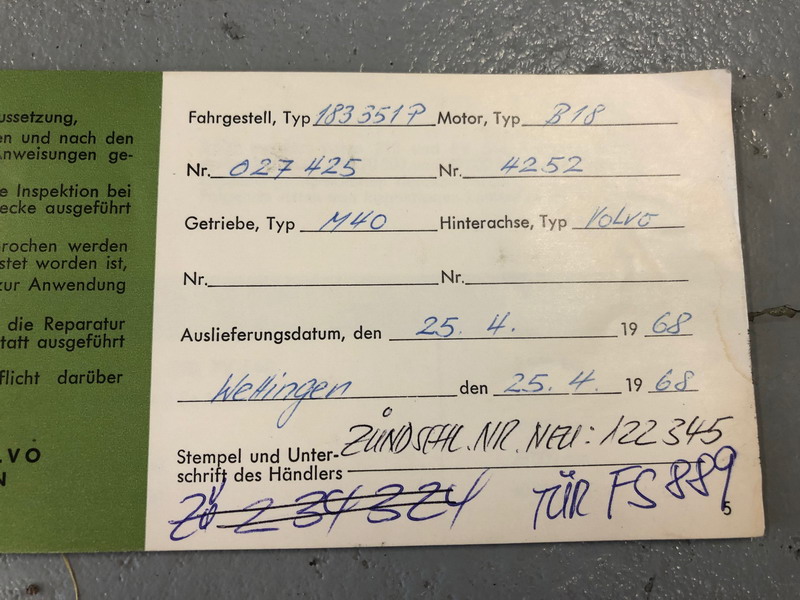 ussetzung,
en und nach den
nweisungen ge-
e Inspektion bei
ecke ausgeführt
rochen werden
stet worden ist,
zur Anwendung
die Reparatur
tatt ausgeführt
flicht darüber
LVO
N
Fahrgestell, Typ 183351P Motor, Typ B18
Nr. 027425 Nr. 4252
Getriebe, Typ M40 Hinterachse, Typ Volvo
Nr. Nr.
Auslieferungsdatum, den 25. 4. 19 68
Wettingen den 25. 4. 19 68
Stempel und Unter-
schrift des Händlers
ZÜNDSCHL. NR. NEU: 122345
Zü 234324
TÜR FS 889
5